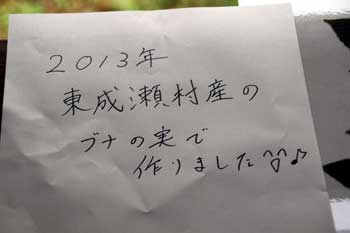 2013年
東成瀬村産の
ブナの実で
作りました♪